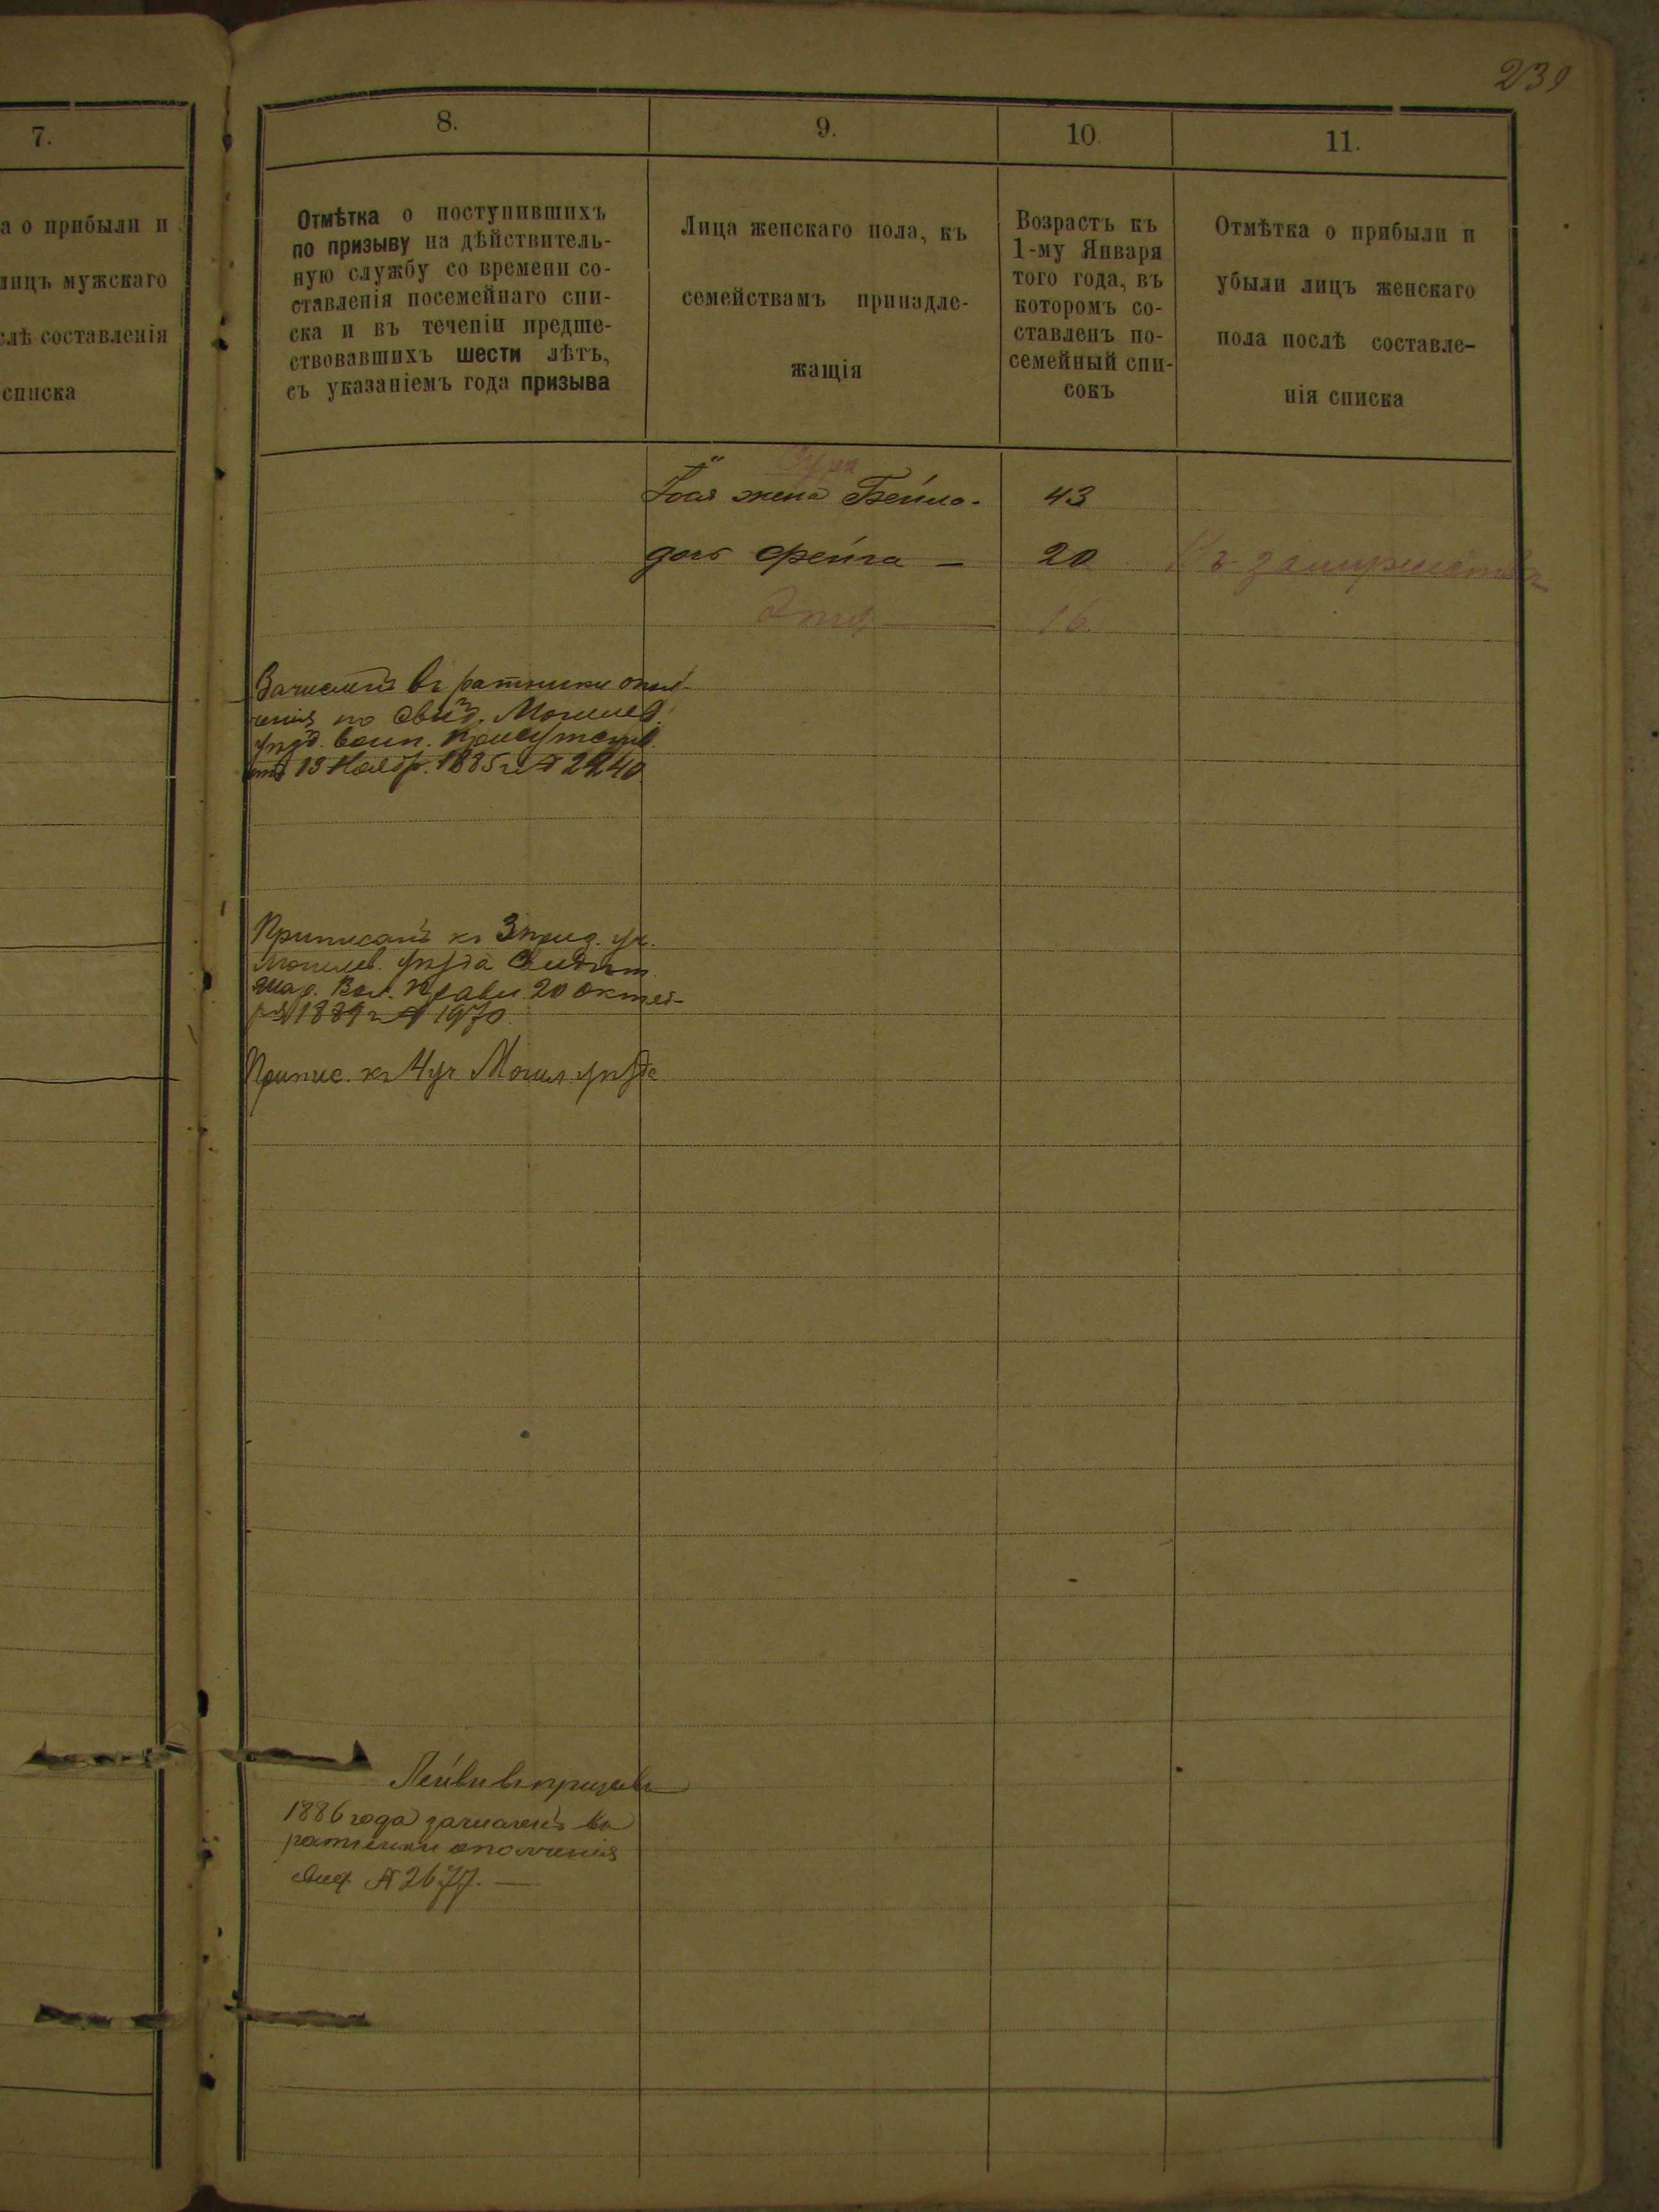 239
7.
а о прибыли и
лицъ мужскаго
слѣ составленія
списка
8.
Отмѣтка о поступившихъ
по призыву на дѣйствитель-
ную службу со времени со-
ставленія посемейнаго спи-
ска и въ теченіи предше-
ствовавшихъ шести лѣтъ,
съ указаніемъ года призыва
9.
Лица женскаго пола, къ
семействамъ принадле-
жащія
10.
Возрастъ къ
1-му Января
того года, въ
которомъ со-
ставленъ по-
семейный спи-
сокъ
11.
Отмѣтка о прибыли и
убыли лицъ женскаго
пола послѣ составле-
нія списка
жена Бейла. 43
дочь Фейга — 20 Въ замужествѣ
Этя — 16.
Зачисленъ въ ратники опол-
ченія по свид. Могилев.
уѣзд. воин. присутств.
13 Ноябр. 1885 г. № 2240
Приписанъ къ 3 приз. уч.
Могилев. уѣзда
Вол. Правл. 20 октяб-
ря 1889 г. № 1970
Припис. къ 4 уч Могил уѣзда
въ призывъ
1886 года зачисленъ въ
ратники ополченія
Свид. № 2677. —